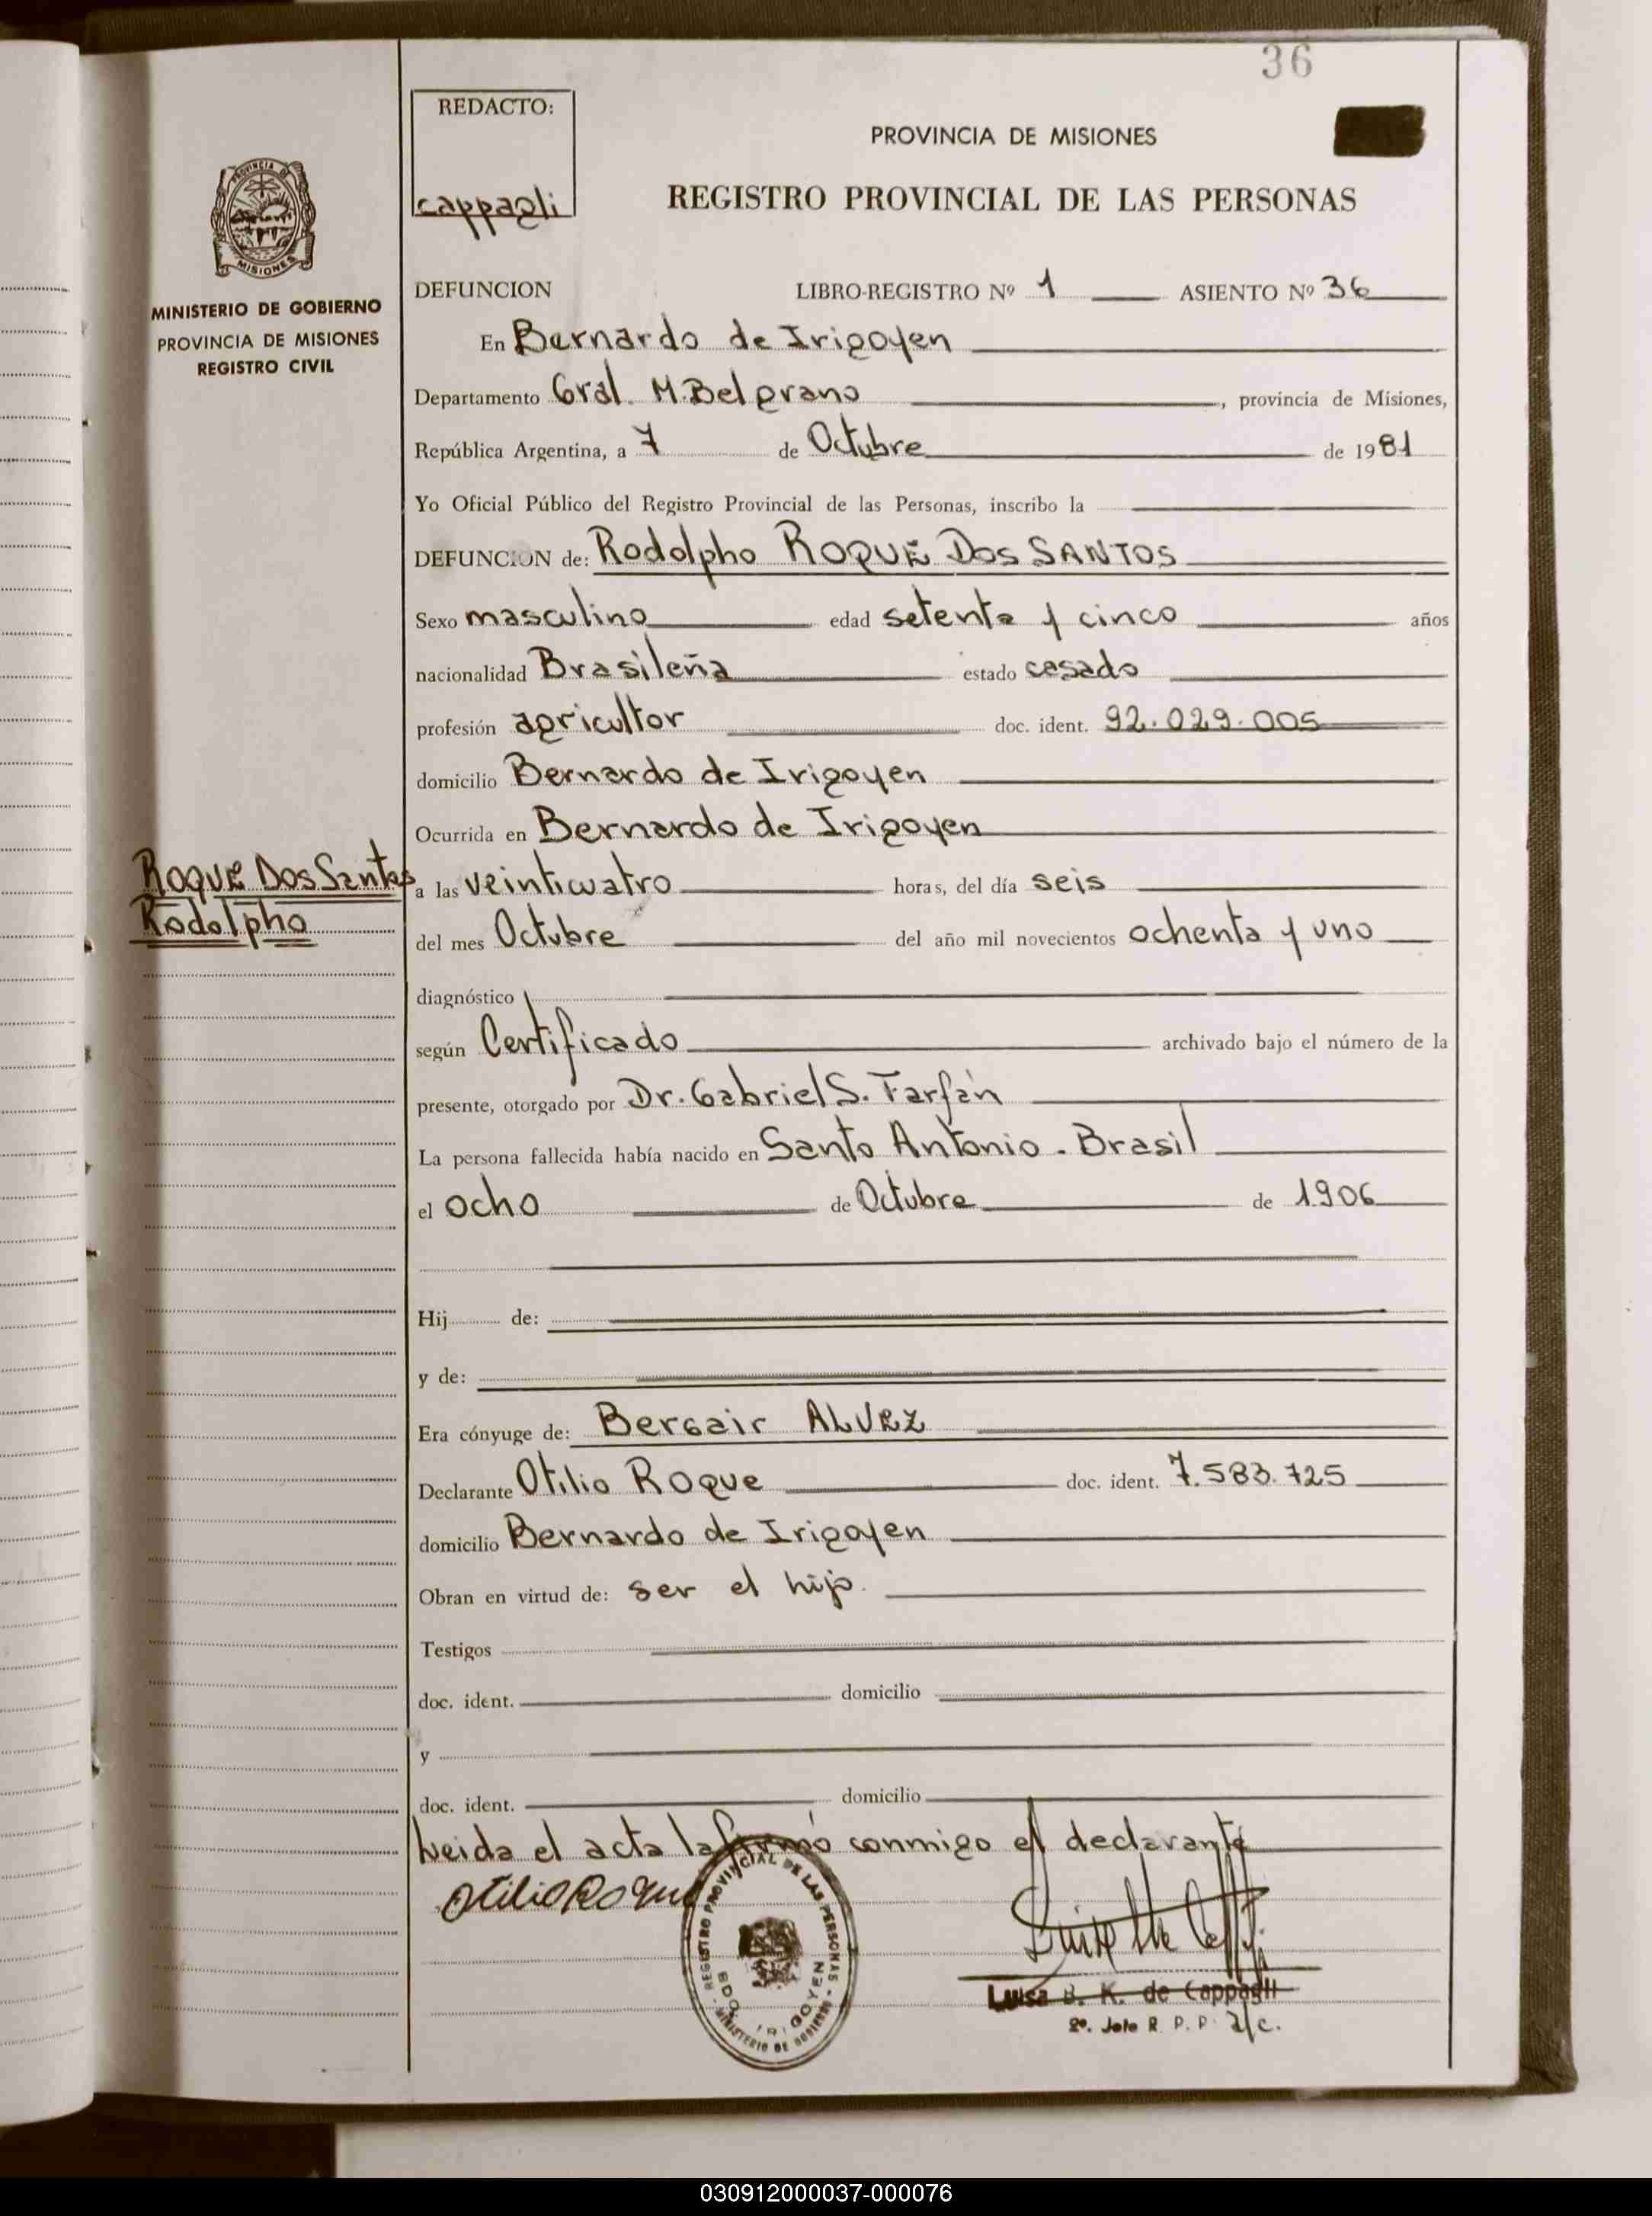 36
REDACTO:
cappagli
PROVINCIA DE MISIONES
REGISTRO PROVINCIAL DE LAS PERSONAS
PROVINCIA DE
MISIONES
MINISTERIO DE GOBIERNO
PROVINCIA DE MISIONES
REGISTRO CIVIL
DEFUNCION LIBRO-REGISTRO Nº 1 ASIENTO Nº 36
En Bernardo de Irigoyen
Departamento Gral. M. Belgrano, provincia de Misiones,
República Argentina, a 7 de Octubre de 1981
Yo Oficial Público del Registro Provincial de las Personas, inscribo la
DEFUNCION de: Rodolpho ROQUE Dos SANTOS
Sexo masculino edad setenta y cinco años
nacionalidad Brasileña estado casado
profesión agricultor doc. ident. 92.029.005
domicilio Bernardo de Irigoyen
Ocurrida en Bernardo de Irigoyen
ROQUE Dos Santos
Rodolpho
a las veinticuatro horas, del día seis
del mes Octubre del año mil novecientos ochenta y uno
diagnóstico
según Certificado archivado bajo el número de la
presente, otorgado por Dr. Gabriel S. Farfán
La persona fallecida había nacido en Santo Antonio - Brasil
el ocho de Octubre de 1.906
Hij de:
y de:
Era cónyuge de: Bersair ALVEZ
Declarante Otilio Roque doc. ident. 7.583.725
domicilio Bernardo de Irigoyen
Obran en virtud de: ser el hijo.
Testigos
doc. ident. domicilio
y
doc. ident. domicilio
Leida el acta la firmó conmigo el declarante
Otilio Roque
REGISTRO PROVINCIAL DE LAS PERSONAS
BDO. IRIGOYEN
MINISTERIO DE GOBIERNO
Luisa B. K. de Cappagli
2º. Jefe R. P. P. a/c.
030912000037-000076